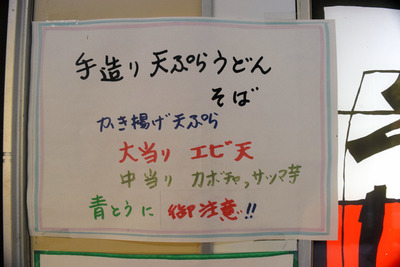 手造り天ぷらうどん
そば
かき揚げ天ぷら
大当り エビ天
中当り カボチャ,サツマ芋
青とうに 御注意!!